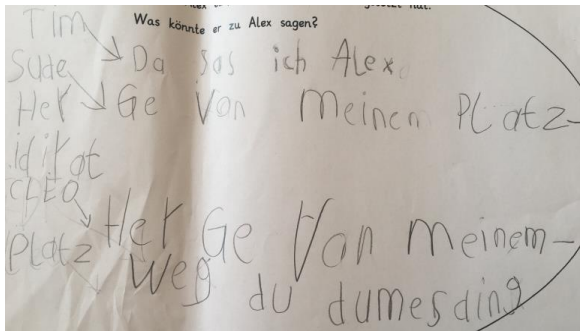 Was könnte er zu Alex sagen?
Tim
Sude Da sas ich Alex.
Her Ge Von meinem Platz
idikat
CLEO
Her Ge Von meinem
Platz weg du dumes ding